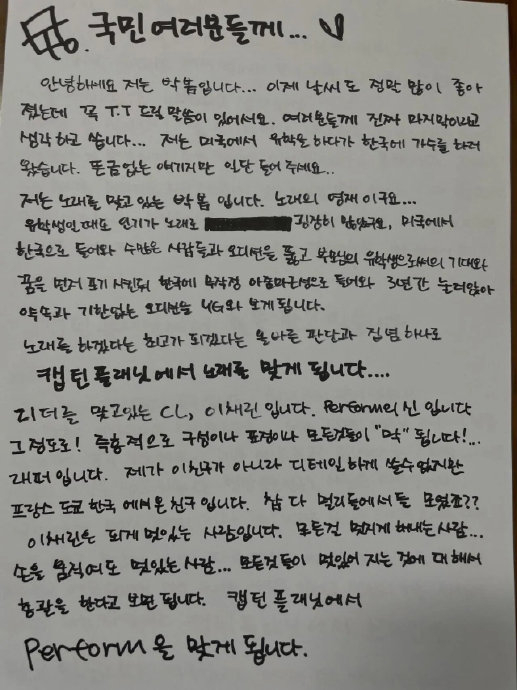 국민여러분들께...
안녕하세요 저는 박봄입니다... 이제 날씨도 정말 많이 좋아
졌는데 꼭 T.T 드릴 말씀이 있어서요. 여러분들께 진짜 마지막이라고
생각하고 씁니다... 저는 미국에서 유학을 하다가 한국에 가수를 하러
왔습니다. 뜬금없는 얘기지만 일단 들어 주세요..
저는 노래를 맞고 있는 박봄 입니다. 노래의 영재 이구요...
유학생인때도 인기가 노래로 굉장히 많았구요, 미국에서
한국으로 들어와 수많은 사람들과 오디션을 뚫고 부모님의 유학생으로써의 기대와
꿈을 먼저 포기 시킨뒤 한국에 무작정 아줌마근성으로 들어와 3년간 눌러앉아
약속과 기한없는 오디션을 YG와 보게 됩니다.
노래를 하겠다는 최고가 되겠다는 올바른 판단과 집념 하나로
캡틴 플래닛에서 노래를 맞게 됩니다....
리더를 맞고있는 CL, 이채린 입니다. Perform의 신 입니다
그정도로! 즉흥적으로 구성이나 표정이나 모든것들이 "딱" 됩니다!...
래퍼 입니다. 제가 이친구가 아니라 디테일 하게 쓸수 없지만
프랑스 도쿄 한국 에서 온 친구 입니다. 참 다 멀리들에서들 모였죠??
이채린은 되게 멋있는 사람입니다. 모든걸 멋지게 해내는 사람...
손을 움직여도 멋있는 사람... 모든것들이 멋있어 지는 것에 대해서
총괄을 한다고 보면 됩니다. 캡틴 플래닛에서
Perform을 맞게 됩니다.